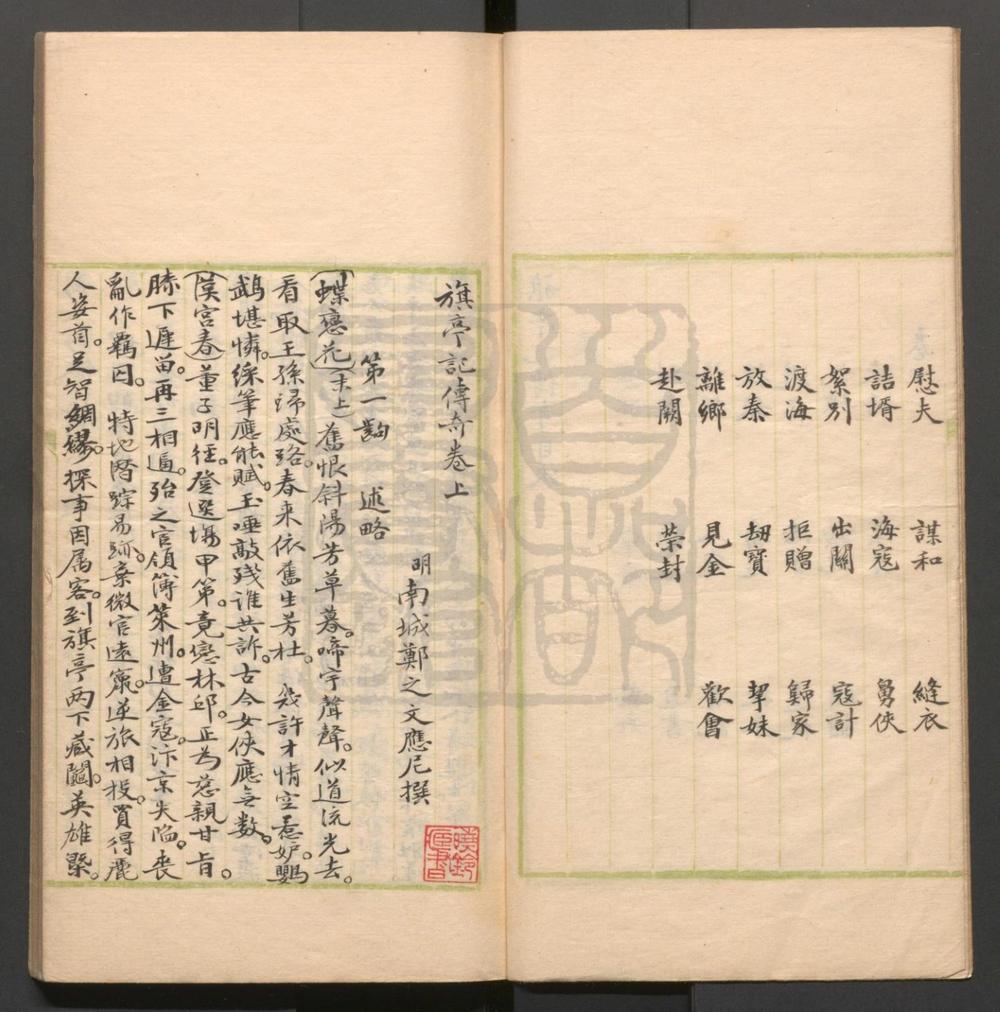 慰夫　謀和　縫衣
詰壻　海寇　勇俠
絮別　出關　寇計
渡海　拒贈　歸家
放秦　劫寶　挈妹
離鄉　見金　歡會
赴闕　榮封
旗亭記傳奇卷上
明南城鄭之文應尼撰
第一齣　述略
（蝶戀花）（末上）舊恨斜陽芳草暮。啼宇聲聲。似道流光去。
看取王孫歸處路。春來依舊生芳杜。幾許才情空惹妒。鸚
鵡堪憐。綵筆應能賦。玉唾敲殘誰共訴。古今女俠應無数。
（漢宮春）董子明徑。登選場甲第。竟戀林邱。正為慈親甘旨。
膝下遲留。再三相逼。殆之官領簿萊州。遭金寇。汴京失陷。喪
亂作羈囚。特地潛踪易跡。棄微官遠竄。逆旅相投。買得麗
人姿首。足智綢繆。探事因属客。到旗亭兩下藏鬮。英雄槩。